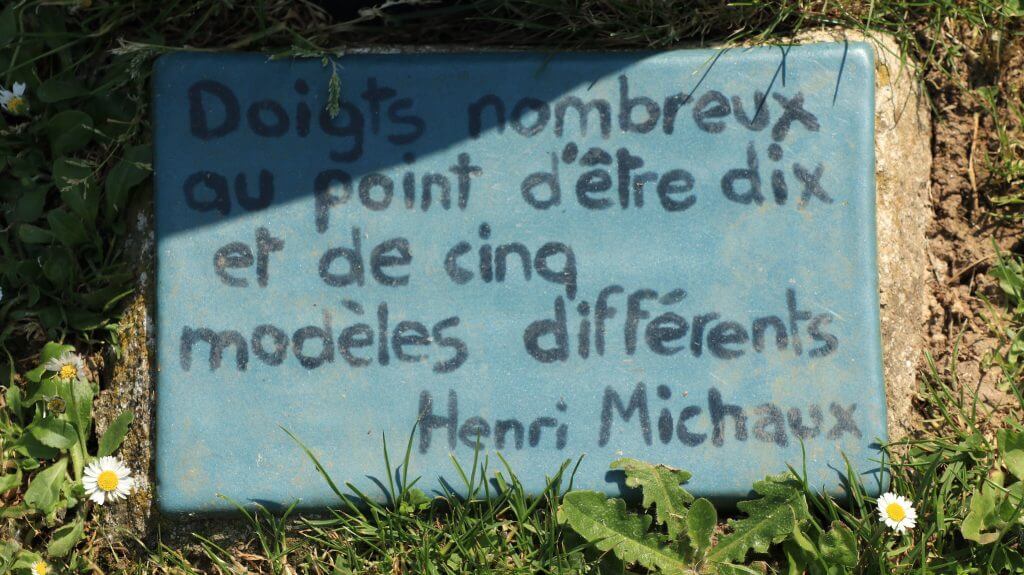 Doigts nombreux
au point d'être dix
et de cinq
modèles différents
Henri Michaux